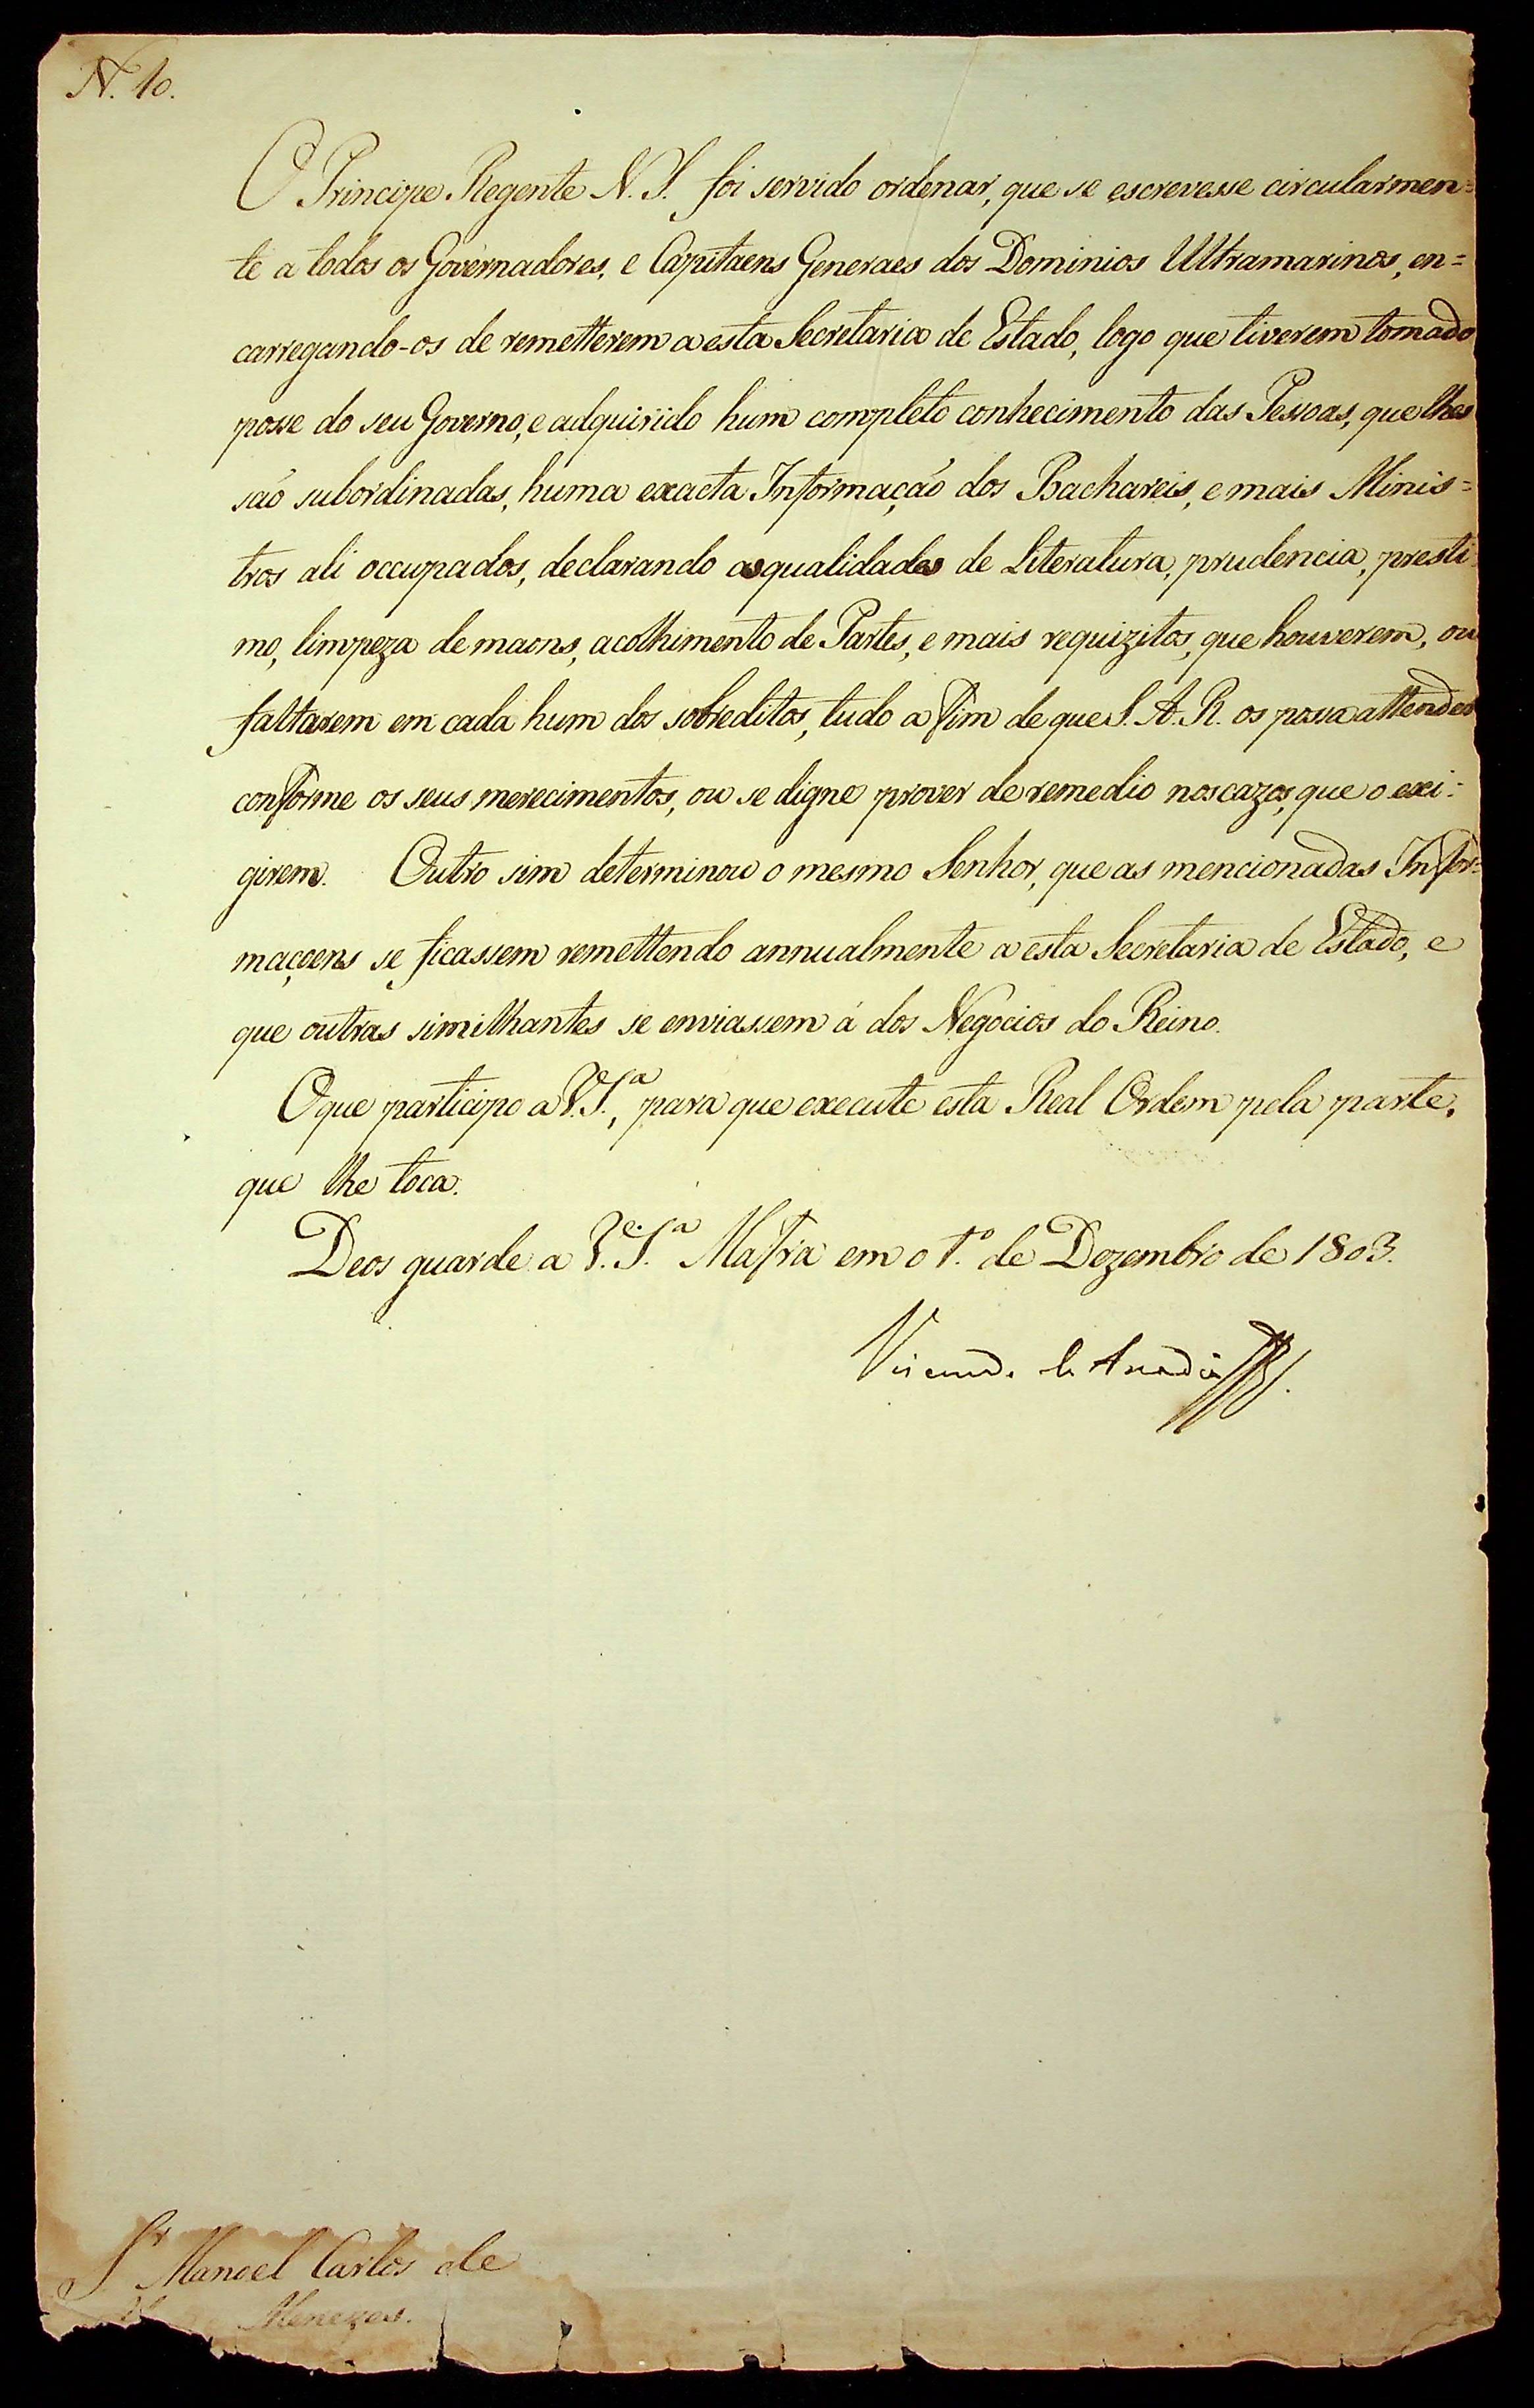 N. 10.
O Principe Regente N. S. foi servido ordenar, que se escrevesse circularmen=
te a todos os Governadores, e Capitaens Generaes dos Dominios Ultramarinos, en=
carregando-os de remetterem a esta Secretaria de Estado, logo que tiverem tomado
posse do seu Governo, e adquirido hum completo conhecimento das Pessoas, que lhes
são subordinadas, huma exacta Informação dos Bachareis, e mais Minis=
tros ali occupados, declarando as qualidades de Literatura, prudencia, presti
mo, limpeza de maons, acolhimento de Partes, e mais requizitos, que houverem, ou
faltarem em cada hum dos sobreditos, tudo a fim de que S. A. R. os possa attender
conforme os seus merecimentos, ou se digne prover de remedio nos cazos, que o exi=
girem. Outro sim determinou o mesmo Senhor, que as mencionadas Infor=
maçoens se ficassem remettendo annualmente a esta Secretaria de Estado, e
que outras similhantes se enviassem á dos Negocios do Reino.
O que participo a V. S.ª, para que execute esta Real Ordem pela parte,
que lhe toca.
Deos guarde a V. S.ª Mafra em o 1.º de Dezembro de 1803.
Visconde de Anadia
Sr Manoel Carlos de
Menezes.